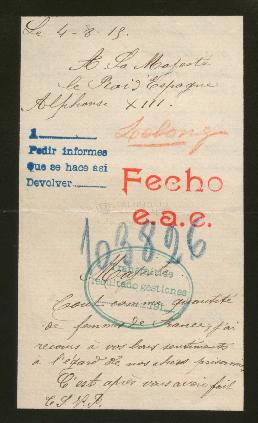 Le 4-8-15.
A Sa Majesté
le Roi d'Espagne
Alphonse XIII.
1
Pedir informes
Que se hace asi
Devolver
Fecho
e.a.c.
103826
resultado gestiones
Tout comme quantité
de femmes de France, j'ai
recours à vos bons sentiments
à l'égard de nos chers
C'est après vous avoir fait